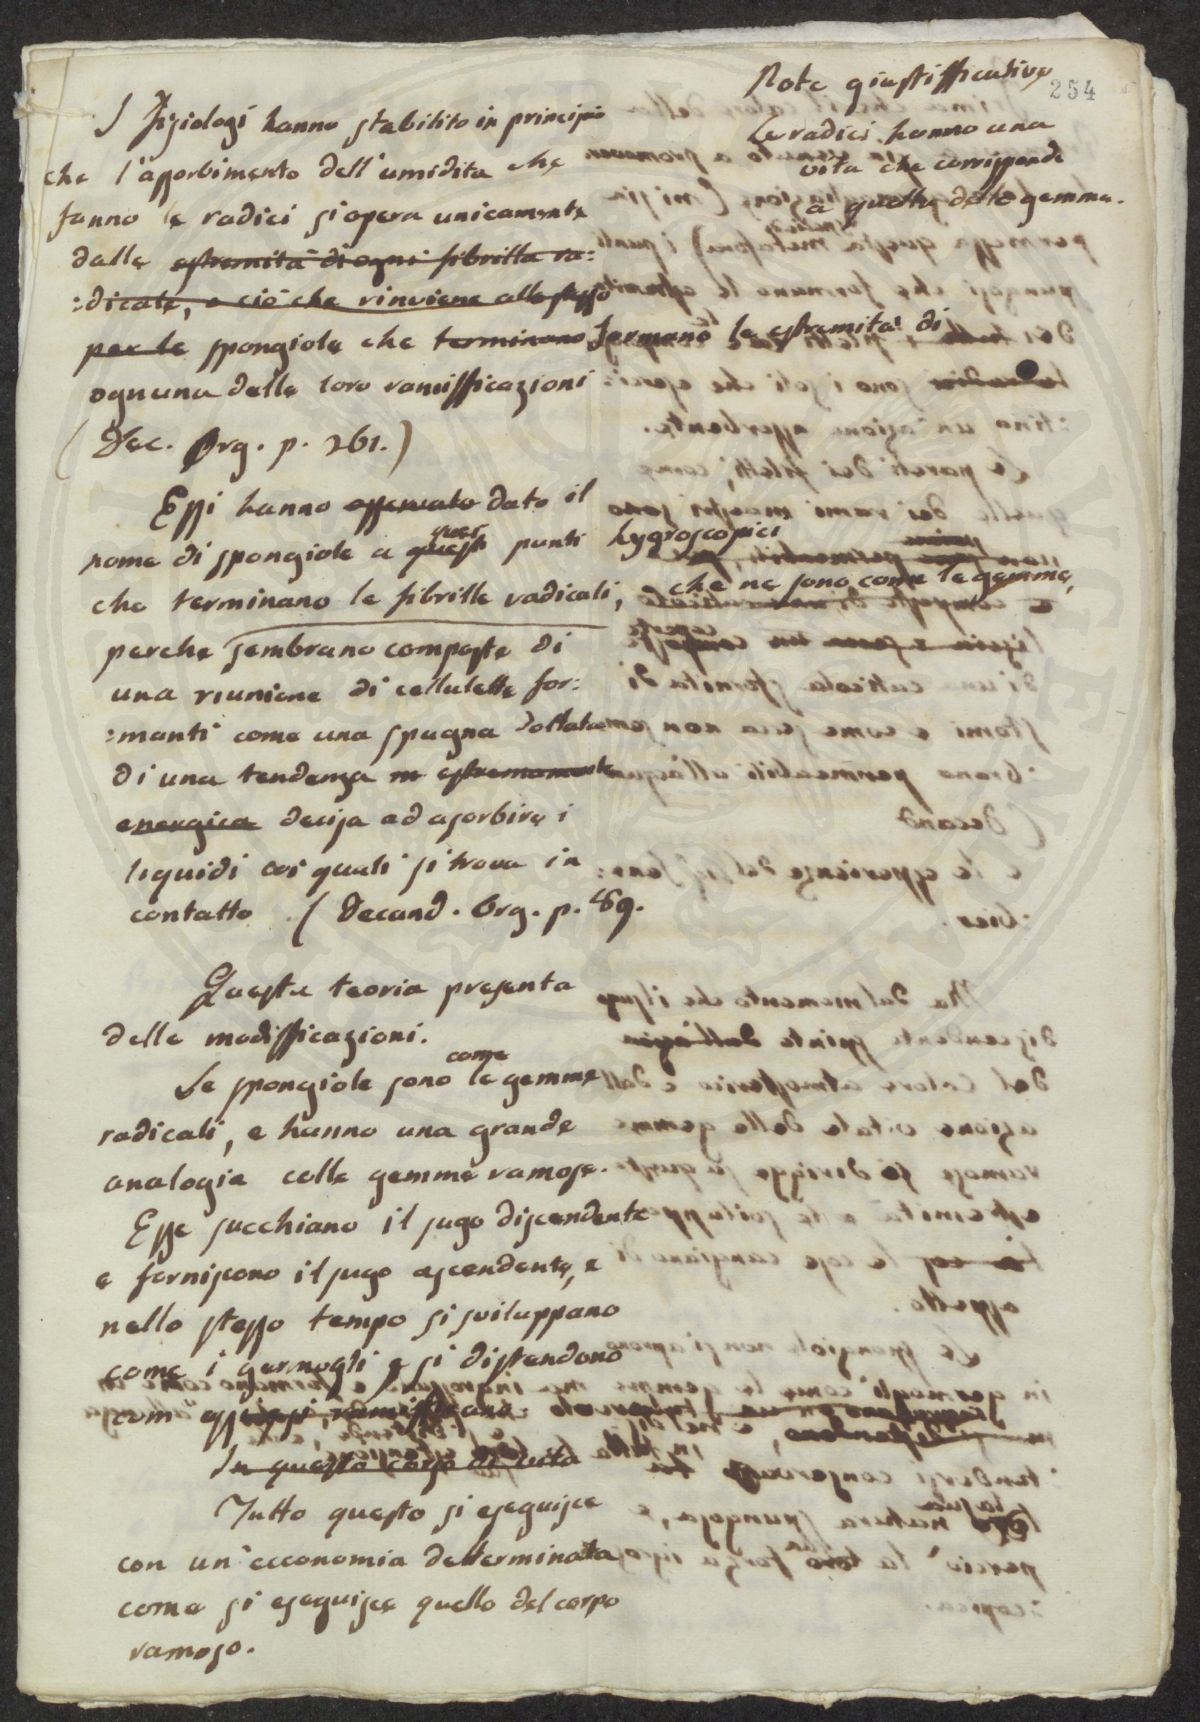 Note giustifficative
254
Le radici hanno una
vita che corrisponde
a quella delle gemme.
I Fisiologi hanno stabilito in principio
che l'assorbimento dell'umidita che
fanno le radici si opera unicamente
dalle estremità di ogni fibrilla ra:
:dicale, e ciò che rinviene allo stesso
per le spongiole che terminano formano le estremita' di
ognuna delle loro ramifficazioni
(Dec. Org. p. 261.)
Essi hanno osservato dato il
nome di spongiole a questi quei punti hygroscopici
che terminano le fibrille radicali, che ne sono come le gemme,
perche sembrano composte di
una riunione di cellulette for:
:manti come una spugna dottata
di una tendenza estremamente
energica decisa ad asorbire i
liquidi coi quali si trova in
contatto. (Decand. Org. p. 89.
Questa teoria presenta
delle modifficazioni.
Le spongiole sono come le gemme
radicali, e hanno una grande
analogia colle gemme ramose.
Esse succhiano il sugo discendente
e forniscono il sugo ascendente, e
nello stesso tempo si sviluppano
come i germogli e si distendono
com' essi si ramifficano
In questo corso di vita
Tutto questo si eseguisce
con un'ecconomia determinata
come si eseguisce quello del corpo
ramoso.